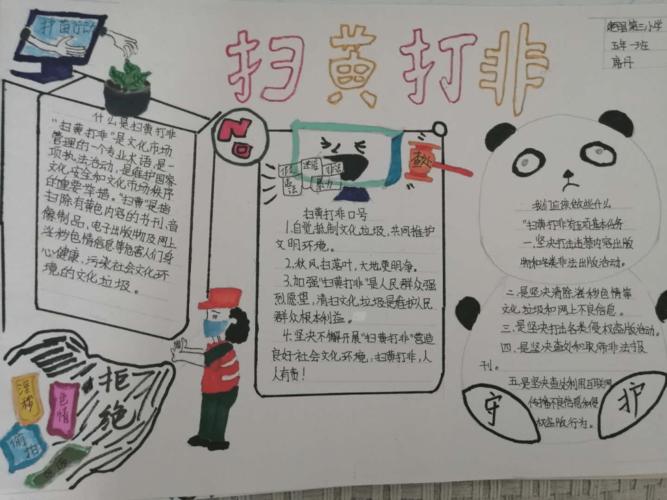 扫黄打非
第三小学
五年一班
护苗行动
什么是扫黄打非
"扫黄打非"是文化市场
管理的一个专业术语,是一
项执法活动,是维护国家
文化安全和文化市场秩序
的重要举措。"扫黄"是指
扫除有黄色内容的书刊、音
像制品、电子出版物及网上
淫秽色情信息等危害人们身
心健康、污染社会文化环
境的文化垃圾。
No
扫黄打非口号
1.自觉抵制文化垃圾,共同维护
文明环境。
2.秋风扫落叶,大地更明净。
3.加强"扫黄打非"是人民群众强
烈愿望,清扫文化垃圾是维护人民
群众根本利益。
4.坚决不懈开展"扫黄打非"营造
良好社会文化环境;扫黄打非,人
人有责!
我们应该做些什么
"扫黄打非"有五项基本任务
一.是坚决打击危禁内容出版
物和各类非法出版活动。
二.是坚决清除淫秽色情等
文化垃圾和网上不良信息。
三.是坚决打击各类侵权盗版活动。
四.是坚决查处和取缔非法报
刊。
五.是坚决查处利用互联网
传播不良信息和侵
权盗版行为。
守
护
拒绝
淫秽
色情
偷拍